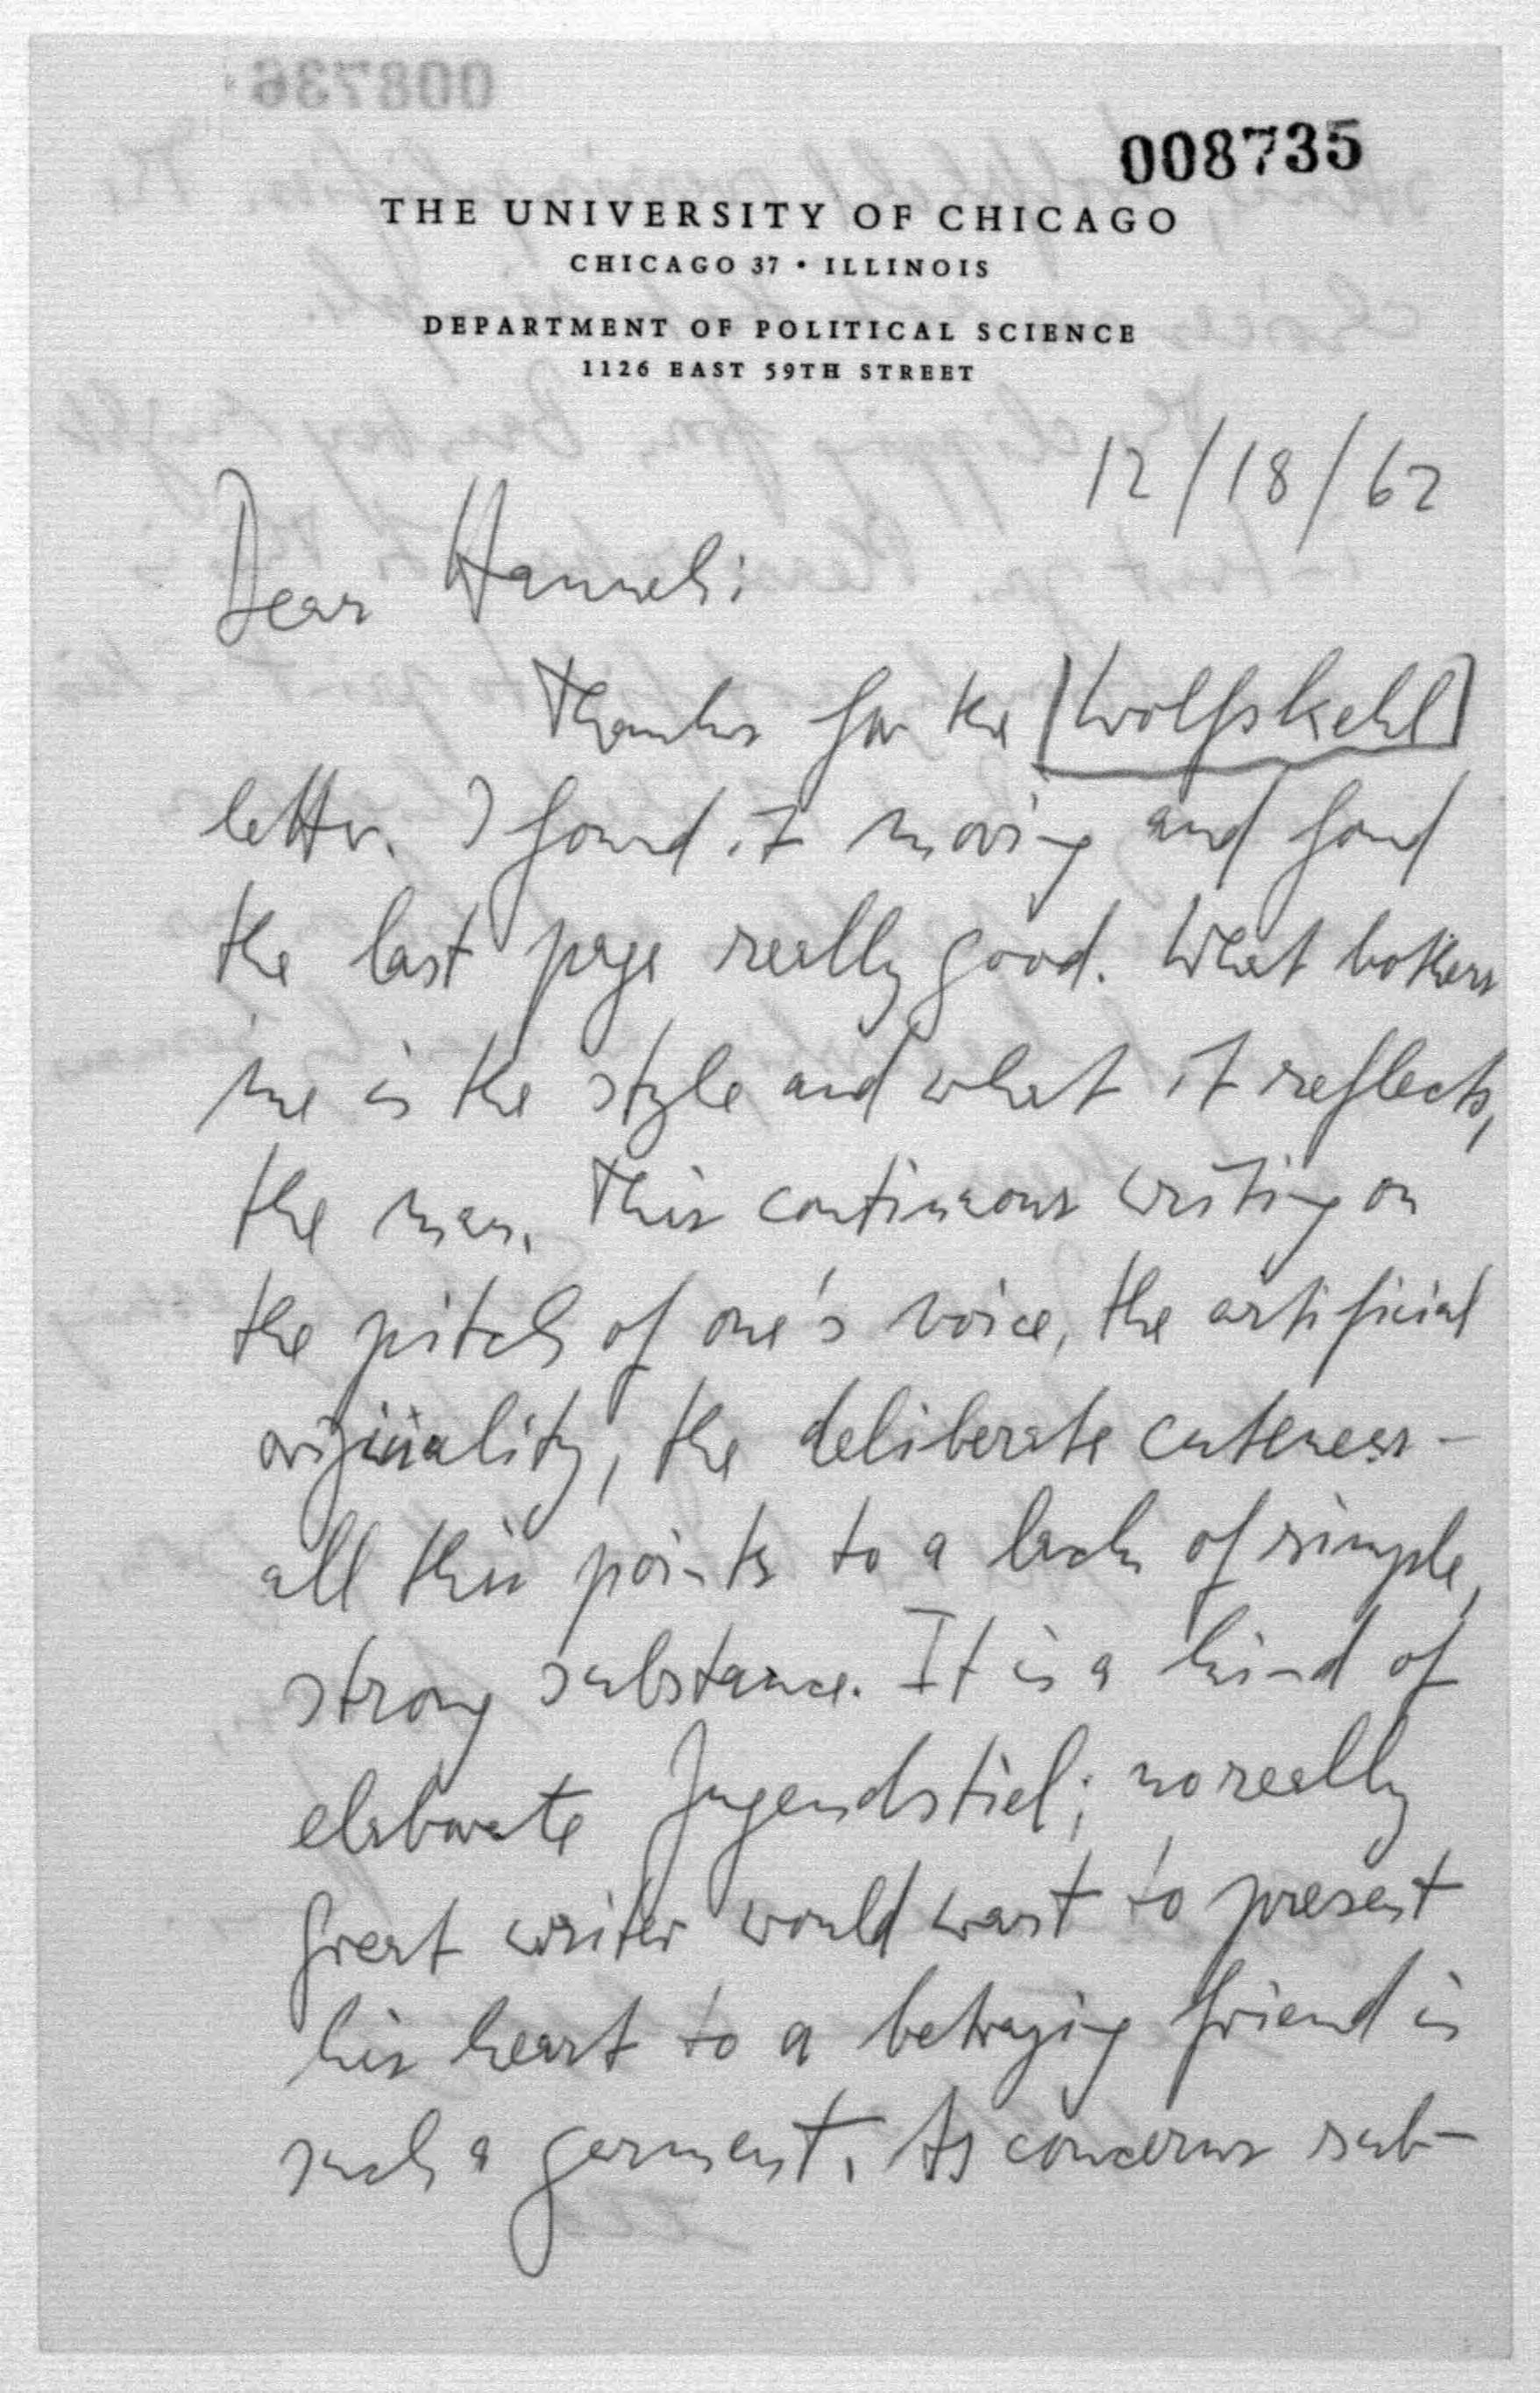 008736
008735
THE UNIVERSITY OF CHICAGO
CHICAGO 37 • ILLINOIS
DEPARTMENT OF POLITICAL SCIENCE
1126 EAST 59TH STREET
12/18/62
Dear
Thanks for the [Wolfskehl]
letter. I found it moving and found
the last page really good. What bothers
me is the style and what it reflects,
the man. This continuous writing on
the pitch of one's voice, the artificial
originality, the deliberate cuteness -
all this points to a lack of simple,
strong substance. It is a kind of
elaborate Jugendstiel; no really
great writer would want to present
his heart to a betraying friend in
such a garment. As concerns sub-